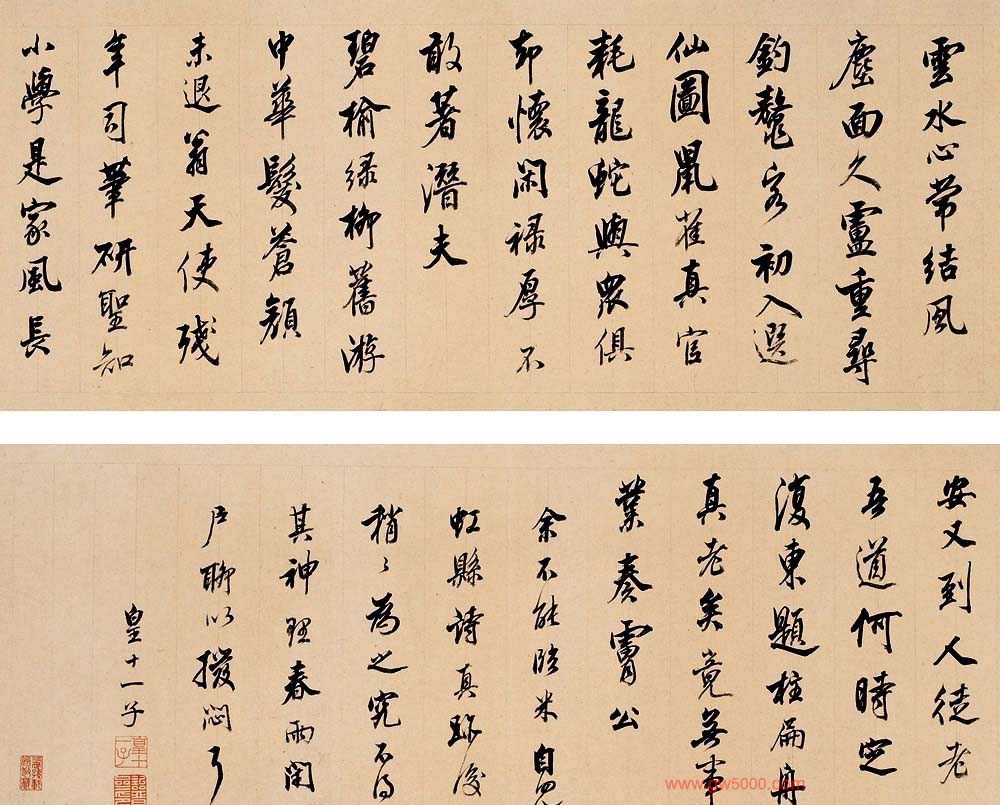 雲水心常結風
塵面久盧重尋
釣鼇客初入選
仙圖鼠雀真官
耗龍蛇與眾俱
却懷閑祿厚不
敢著潛夫
碧榆綠柳舊游
中華髮蒼顏
未退翁天使殘
年司筆研聖知
小學是家風長
安又到人徒老
吾道何時定
復東題柱扁舟
真老矣竟無事
業奏膚公
余不能臨米自
虹縣詩真跡後
稍〻為之究不得
其神理春雨閉
戶聊以撥悶耳
皇十一子
皇十一子
www.pw5000.com